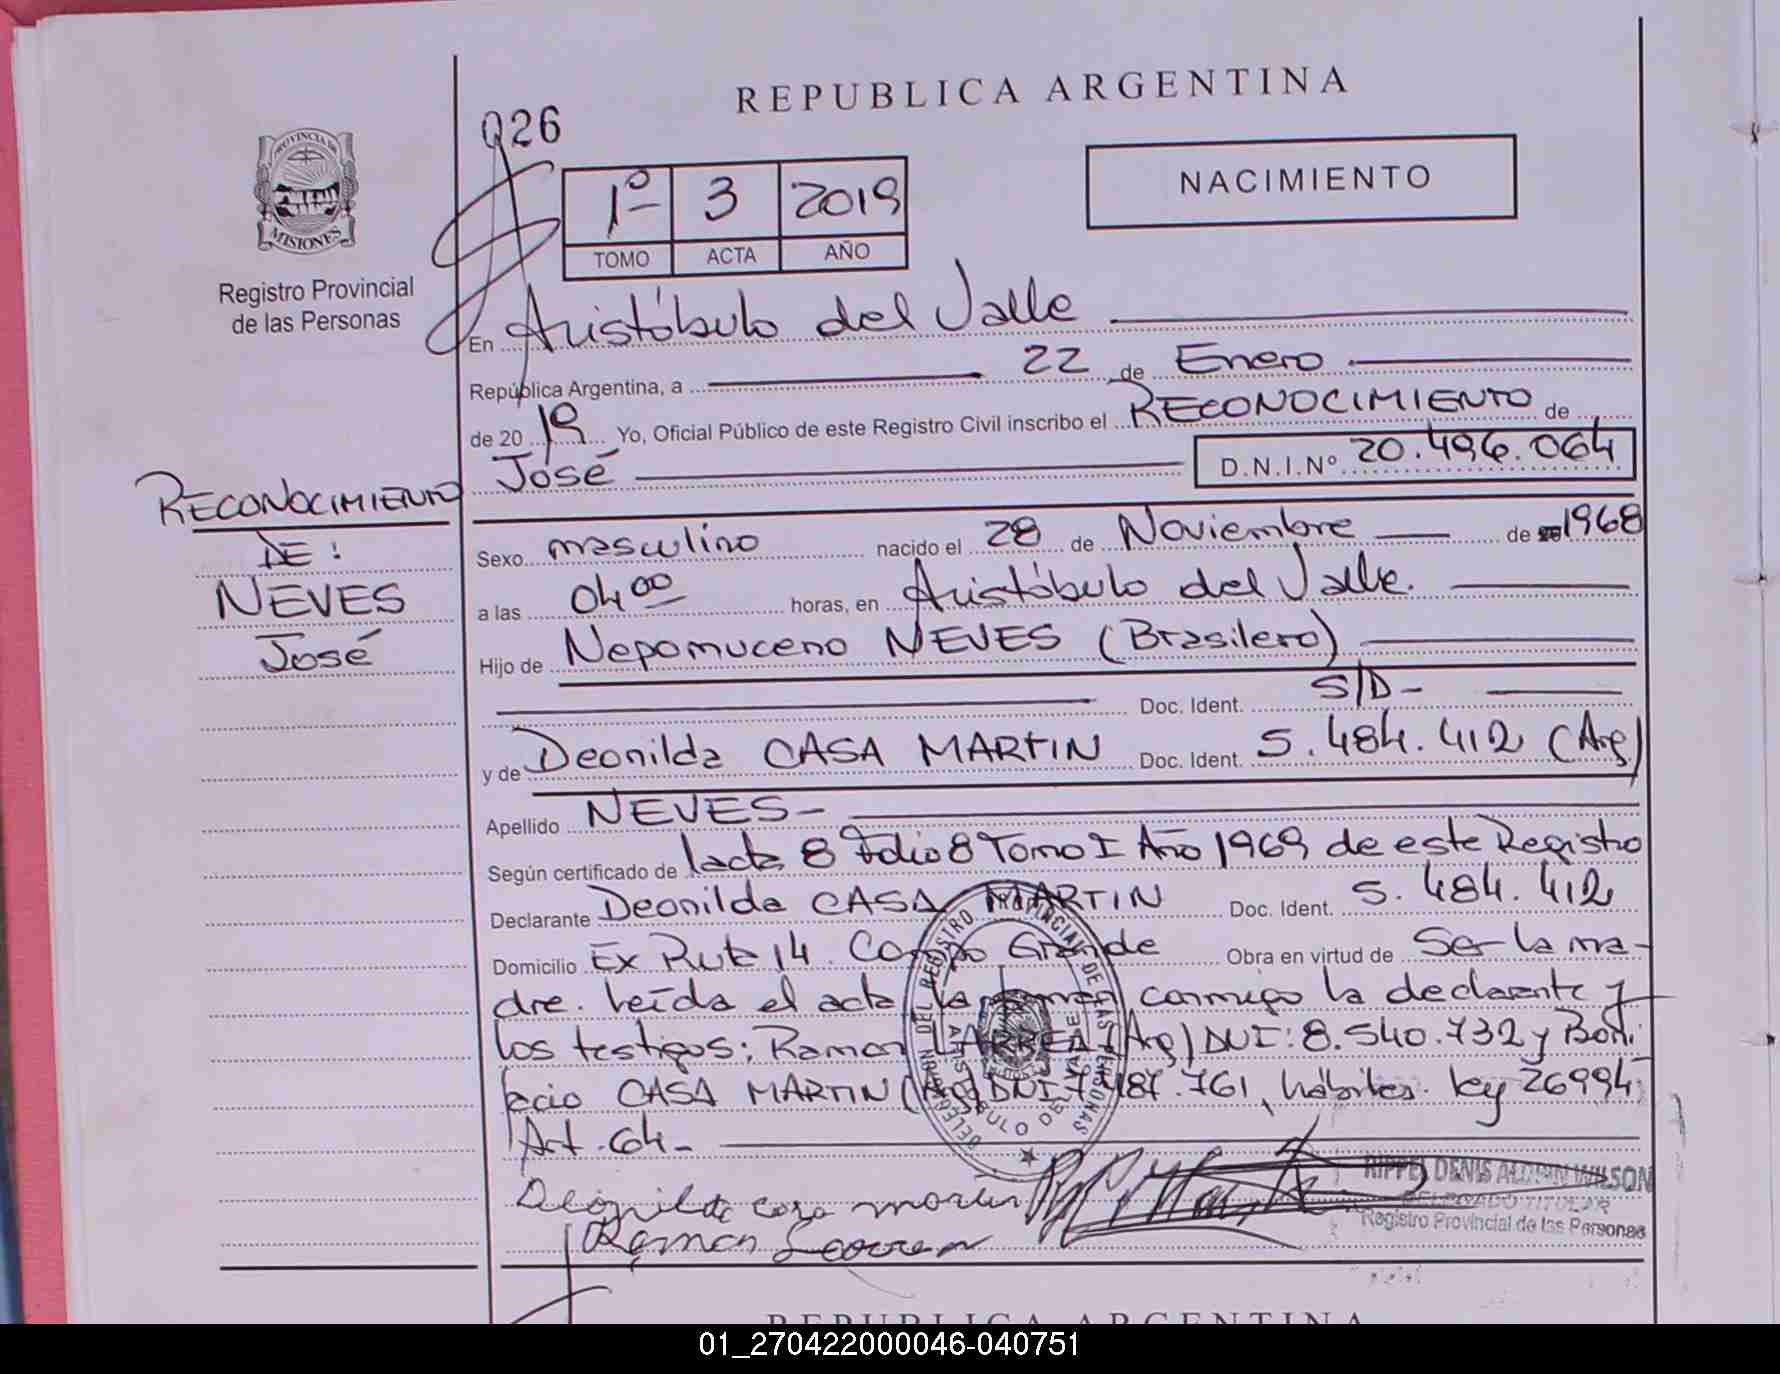 REPUBLICA ARGENTINA
026
PROVINCIA DE
MISIONES
Registro Provincial
de las Personas
1º 3 2019
TOMO ACTA AÑO
NACIMIENTO
En Aristóbulo del Valle
República Argentina, a 22 de Enero
de 2019 Yo, Oficial Público de este Registro Civil inscribo el RECONOCIMIENTO de
José D.N.I.Nº 20.496.064
RECONOCIMIENTO
DE:
NEVES
José
Sexo masculino nacido el 28 de Noviembre de 1968
a las 04 00 horas, en Aristóbulo del Valle.
Hijo de Nepomuceno NEVES (Brasilero)
Doc. Ident. S/D-
y de Deonilda CASA MARTIN Doc. Ident. 5.484.412 (Arg)
Apellido NEVES-
Según certificado de lacta 8 Folio 8 Tomo I Año 1969 de este Registro
Declarante Deonilda CASA MARTIN Doc. Ident. 5.484.412
Domicilio Ex Ruta 14. Campo Grande Obra en virtud de Ser la ma-
dre. Leída el acta la firman conmigo la declarante y
los testigos: Ramon LARREA (Arg) DNI: 8.540.732 y Boni
facio CASA MARTIN (Arg) DNI 7.487.761, hábiles. Ley 26994
Art. 64-
Deonilda casa martin
Ramon Larrea
RIPPEL DENIS ALDRIN WILSON
DELEGADO TITULAR
Registro Provincial de las Personas
REPUBLICA ARGENTINA
01_270422000046-040751